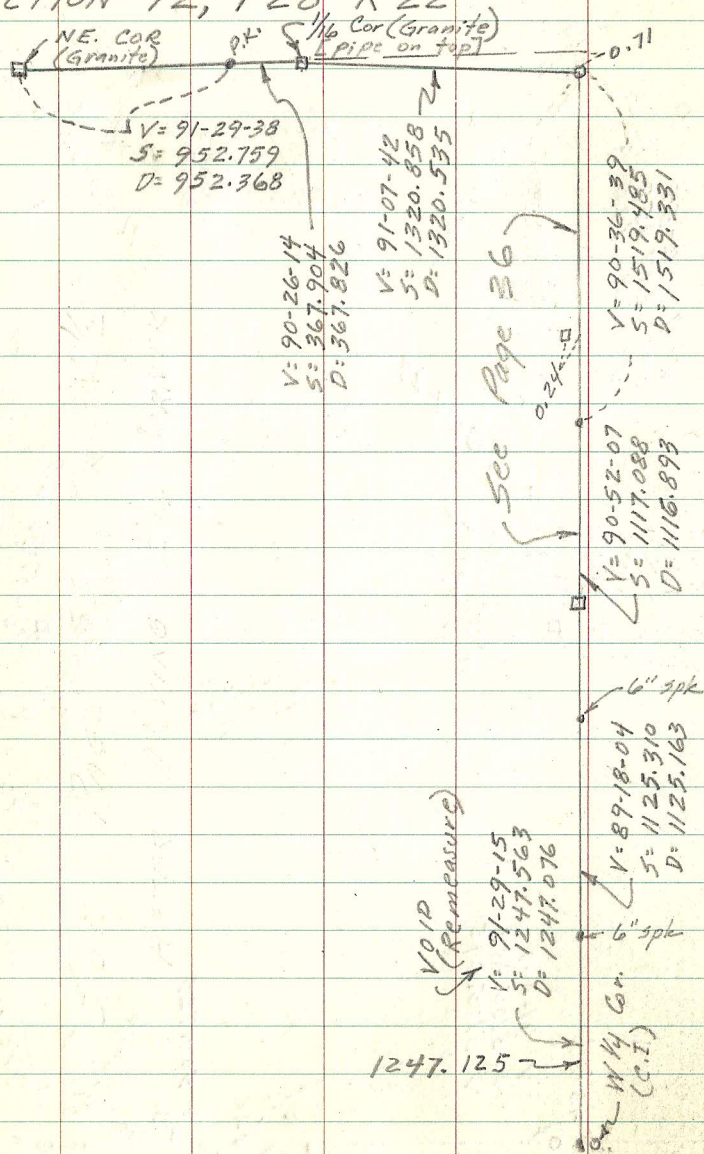 T28 R 22
NE. COR
(Granite)
P.t.
1/16 Cor (Granite)
[pipe on top]
0.71
V= 91-29-38
S= 952.759
D= 952.368
V= 90-26-14
S= 367.904
D= 367.826
V= 91-07-42
S= 1320.858
D= 1320.535
See Page 36
V= 90-36-39
S= 1519.485
D= 1519.331
0.24
V= 90-52-07
S= 1117.088
D= 1116.893
6" spk
V= 89-18-04
S= 1125.310
D= 1125.163
VOID
(Remeasure)
V= 91-29-15
S= 1247.563
D= 1247.076
6" spk
1247.125
W 1/4 Cor.
(C.I.)